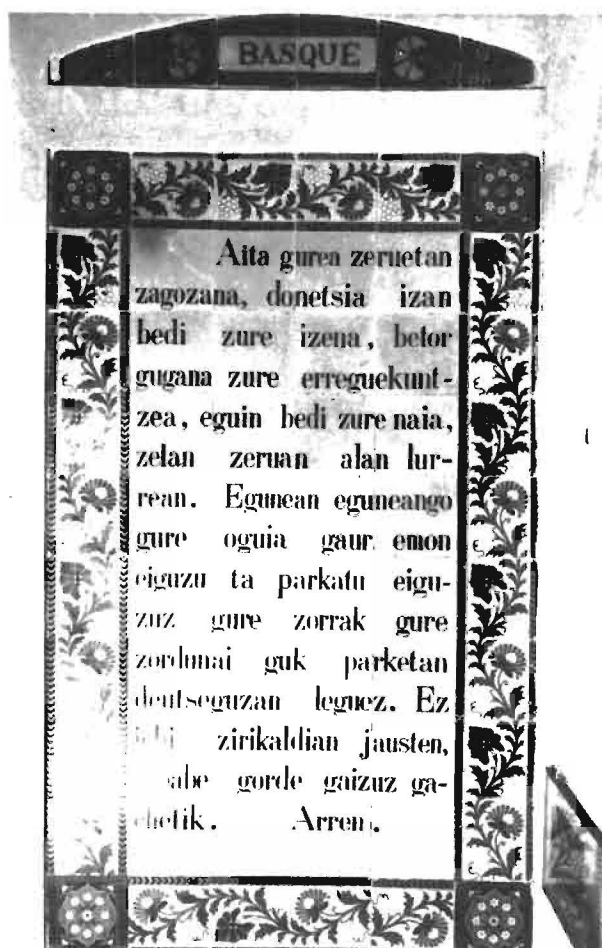 BASQUE
Aita gurea zeruetan
zagozana, donetsia izan
bedi zure izena, betor
gugana zure erreguekunt-
zea, eguin bedi zure naia,
zelan zeruan alan lur-
rean. Egunean eguneango
gure oguia gaur emon
eiguzu ta parkatu eigu-
zuz gure zorrak gure
zordunai guk parketan
deutseguzan leguez. Ez
zirikaldian jausten,
gorde gaizuz ga-
chetik. Arren.